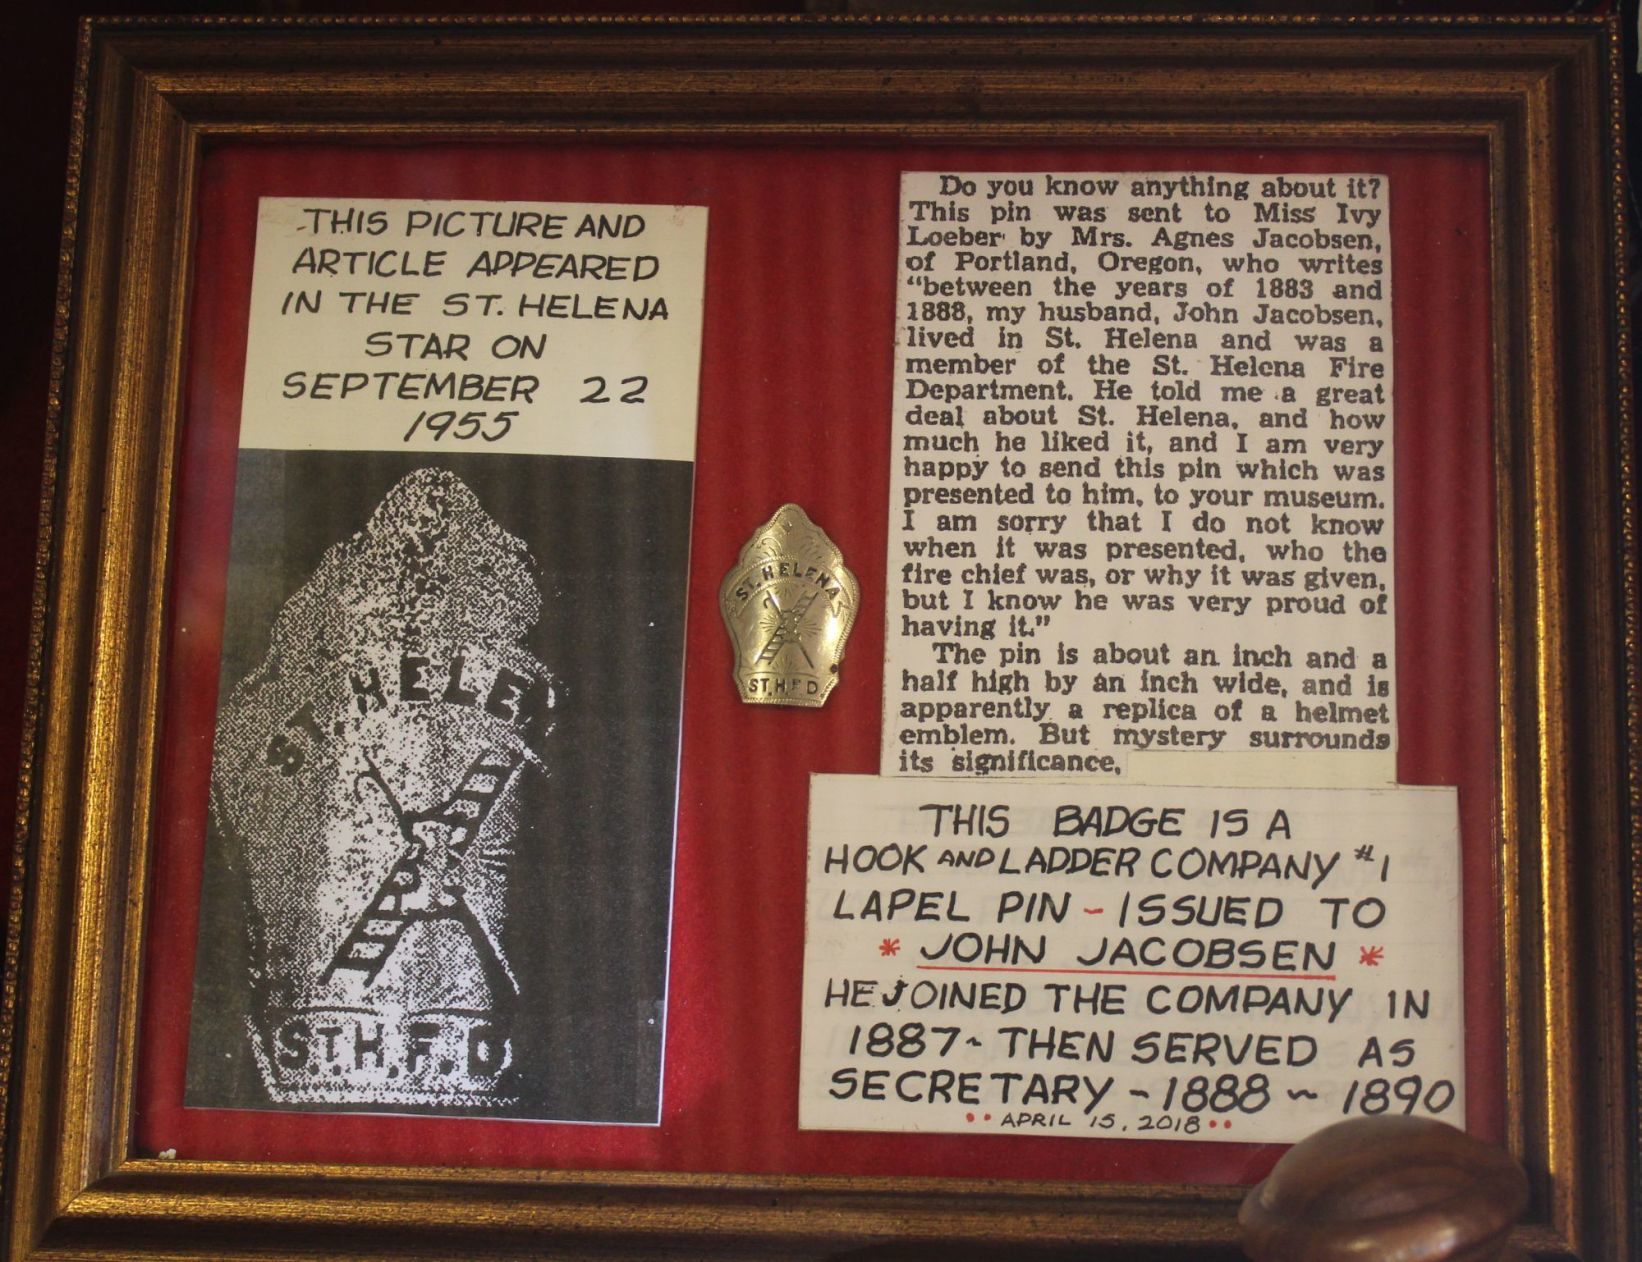 THIS PICTURE AND
ARTICLE APPEARED
IN THE ST. HELENA
STAR ON
SEPTEMBER 22
1955
ST. HELEN
S.T.H.F.D
ST. HELENA
ST.H.F.D
Do you know anything about it?
This pin was sent to Miss Ivy
Loeber by Mrs. Agnes Jacobsen,
of Portland, Oregon, who writes
"between the years of 1883 and
1888, my husband, John Jacobsen,
lived in St. Helena and was a
member of the St. Helena Fire
Department. He told me a great
deal about St. Helena, and how
much he liked it, and I am very
happy to send this pin which was
presented to him, to your museum.
I am sorry that I do not know
when it was presented, who the
fire chief was, or why it was given,
but I know he was very proud of
having it."
The pin is about an inch and a
half high by an inch wide, and is
apparently a replica of a helmet
emblem. But mystery surrounds
its significance.
THIS BADGE IS A
HOOK AND LADDER COMPANY #1
LAPEL PIN - ISSUED TO
* JOHN JACOBSEN *
HE JOINED THE COMPANY IN
1887 ~ THEN SERVED AS
SECRETARY ~ 1888 ~ 1890
•• APRIL 15, 2018 ••